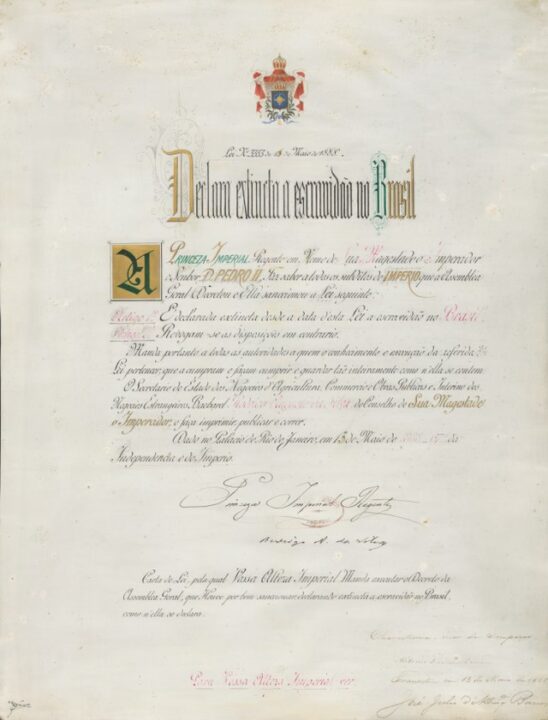 Lei Nº 3353 de 13 de Maio de 1888.
Declara extincta a escravidão no Brasil
A PRINCEZA IMPERIAL Regente em Nome de Sua Magestade o Imperador
o Senhor D. PEDRO II, Faz saber a todos os subditos do IMPERIO que a Assembléa
Geral Decretou e Ella sanccionou a Lei seguinte:
Artigo 1º É declarada extincta desde a data desta Lei a escravidão no Brazil.
Artigo 2º Revogam-se as disposições em contrario.
Manda portanto a todas as autoridades a quem o conhecimento e execução da referida
Lei pertencer, que a cumpram e façam cumprir e guardar tão inteiramente como n'ella se contem.
O Secretario de Estado dos Negocios d'Agricultura, Commercio e Obras Publicas e Interino dos
Negocios Estrangeiros, Bacharel do Conselho de Sua Magestade
o Imperador, o faça imprimir publicar e correr.
Dado no Palacio do Rio de Janeiro, em 13 de Maio de da
Independencia e do Imperio.
Princeza Imperial Regente
Rodrigo A. da Silva
Carta de Lei, pela qual Vossa Alteza Imperial Manda executar o Decreto da
Assembléa Geral, que Houve por bem sanccionar declarando extincta a escravidão no Brasil,
como n'ella se declara.
Para Vossa Alteza Imperial ver.
Chancellaria-mór do Imperio
em 13 de Maio de 1888
José Julio de